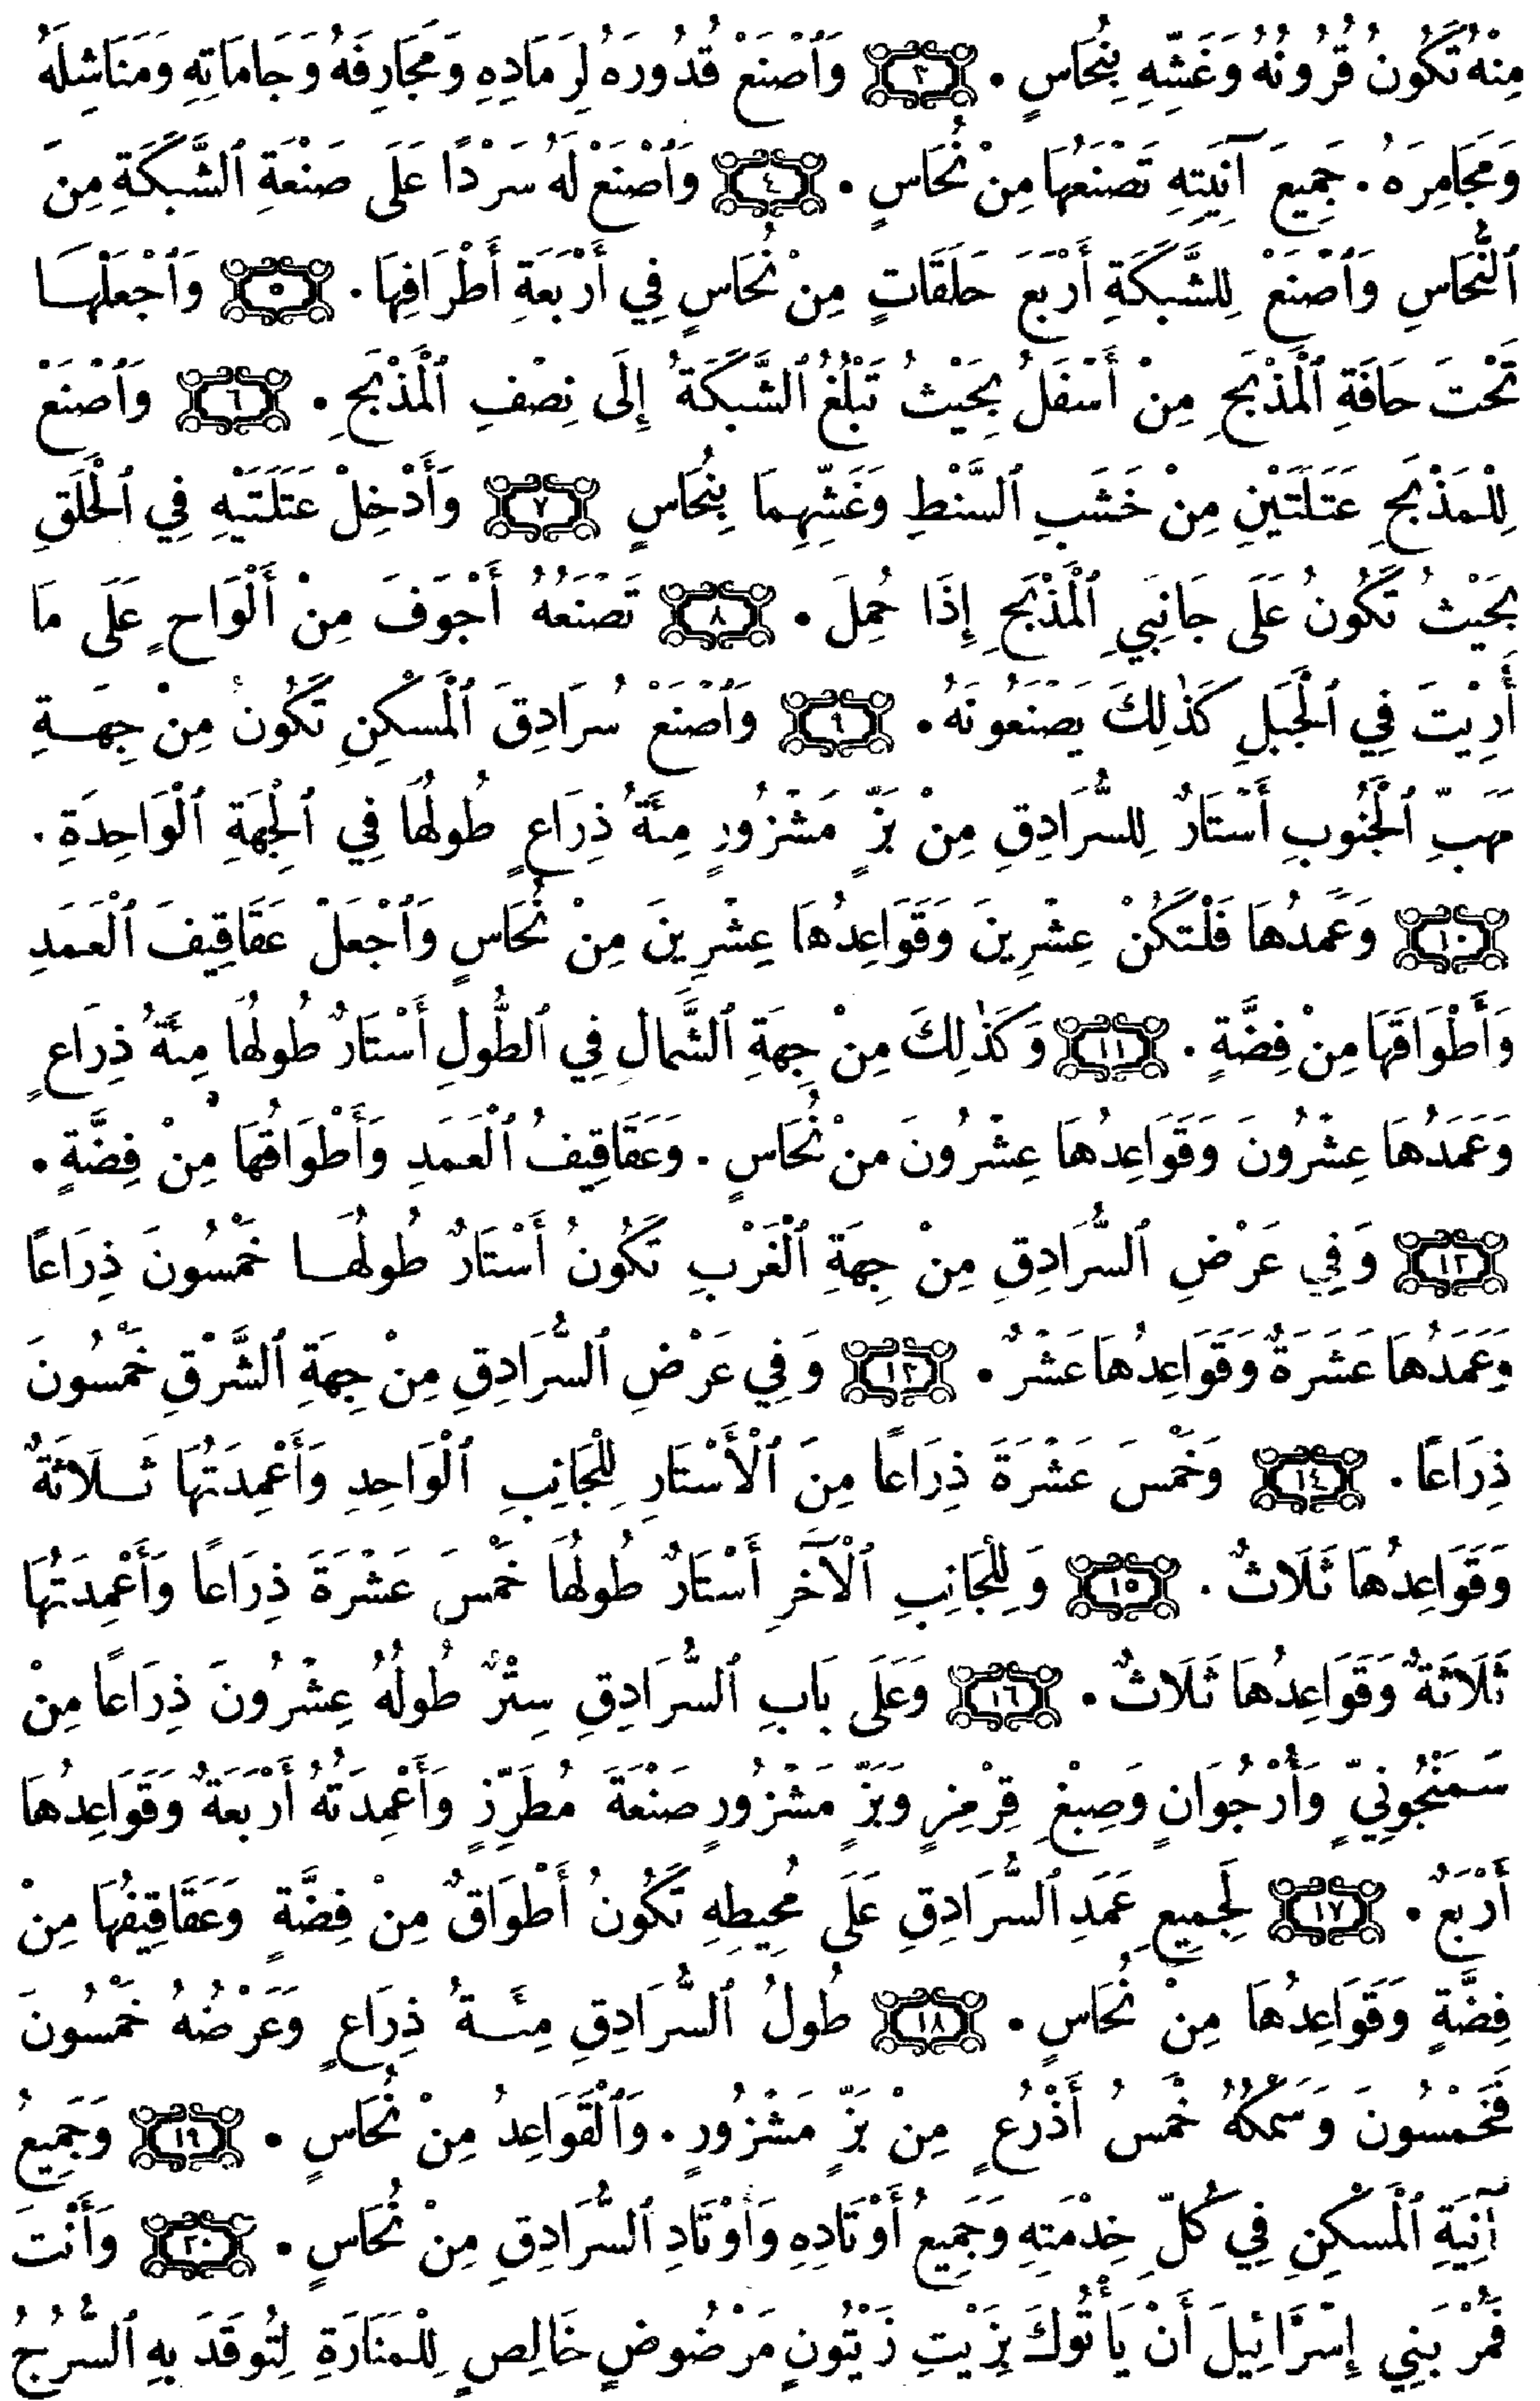 مِنْهُ تَكُونُ قُرُونُهُ وَغَشِّهِ بِنُحَاسٍ. ٣ وَٱصْنَعْ قُدُورَهُ لِرَمَادِهِ وَمَجَارِفَهُ وَجَامَاتِهِ وَمَنَاشِلَهُ
وَمَجَامِرَهُ. جَمِيعَ آنِيَتِهِ تَصْنَعُهَا مِنْ نُحَاسٍ. ٤ وَٱصْنَعْ لَهُ سَرْدًا عَلَى صَنْعَةِ ٱلشَّبَكَةِ مِنَ
ٱلنُّحَاسِ وَٱصْنَعْ لِلشَّبَكَةِ أَرْبَعَ حَلَقَاتٍ مِنْ نُحَاسٍ فِي أَرْبَعَةِ أَطْرَافِهَا. ٥ وَٱجْعَلْهَا
تَحْتَ حَافَةِ ٱلْمَذْبَحِ مِنْ أَسْفَلُ بِحَيْثُ تَبْلُغُ ٱلشَّبَكَةُ إِلَى نِصْفِ ٱلْمَذْبَحِ. ٦ وَٱصْنَعْ
لِلْمَذْبَحِ عَتَلَتَيْنِ مِنْ خَشَبِ ٱلسَّنْطِ وَغَشِّهِمَا بِنُحَاسٍ ٧ وَأَدْخِلْ عَتَلَتَيْهِ فِي ٱلْحَلَقِ
بِحَيْثُ تَكُونُ عَلَى جَانِبَيِ ٱلْمَذْبَحِ إِذَا حُمِلَ. ٨ تَصْنَعُهُ أَجْوَفَ مِنْ أَلْوَاحٍ عَلَى مَا
أُرِيْتَ فِي ٱلْجَبَلِ كَذٰلِكَ يَصْنَعُونَهُ. ٩ وَٱصْنَعْ سُرَادِقَ ٱلْمَسْكِنِ تَكُونُ مِنْ جِهَةِ
مَهَبِّ ٱلْجَنُوبِ أَسْتَارٌ لِلسُّرَادِقِ مِنْ بَزٍّ مَشْزُورٍ مِئَةُ ذِرَاعٍ طُولُهَا فِي ٱلْجِهَةِ ٱلْوَاحِدَةِ.
١٠ وَعَمَدُهَا فَلْتَكُنْ عِشْرِينَ وَقَوَاعِدُهَا عِشْرِينَ مِنْ نُحَاسٍ وَٱجْعَلْ عَقَاقِيفَ ٱلْعَمَدِ
وَأَطْوَاقَهَا مِنْ فِضَّةٍ. ١١ وَكَذٰلِكَ مِنْ جِهَةِ ٱلشَّمَالِ فِي ٱلطُّولِ أَسْتَارٌ طُولُهَا مِئَةُ ذِرَاعٍ
وَعَمَدُهَا عِشْرُونَ وَقَوَاعِدُهَا عِشْرُونَ مِنْ نُحَاسٍ. وَعَقَاقِيفُ ٱلْعَمَدِ وَأَطْوَاقُهَا مِنْ فِضَّةٍ.
١٢ وَفِي عَرْضِ ٱلسُّرَادِقِ مِنْ جِهَةِ ٱلْغَرْبِ تَكُونُ أَسْتَارٌ طُولُهَا خَمْسُونَ ذِرَاعًا
وَعَمَدُهَا عَشَرَةٌ وَقَوَاعِدُهَا عَشْرٌ. ١٣ وَفِي عَرْضِ ٱلسُّرَادِقِ مِنْ جِهَةِ ٱلشَّرْقِ خَمْسُونَ
ذِرَاعًا. ١٤ وَخَمْسَ عَشْرَةَ ذِرَاعًا مِنَ ٱلْأَسْتَارِ لِلْجَانِبِ ٱلْوَاحِدِ وَأَعْمِدَتُهَا ثَلَاثَةٌ
وَقَوَاعِدُهَا ثَلَاثٌ. ١٥ وَلِلْجَانِبِ ٱلْآخَرِ أَسْتَارٌ طُولُهَا خَمْسَ عَشْرَةَ ذِرَاعًا وَأَعْمِدَتُهَا
ثَلَاثَةٌ وَقَوَاعِدُهَا ثَلَاثٌ. ١٦ وَعَلَى بَابِ ٱلسُّرَادِقِ سِتْرٌ طُولُهُ عِشْرُونَ ذِرَاعًا مِنْ
سَمَنْجُونِيٍّ وَأُرْجُوَانٍ وَصِبْغِ قِرْمِزٍ وَبَزٍّ مَشْزُورٍ صَنْعَةَ مُطَرِّزٍ وَأَعْمِدَتُهُ أَرْبَعَةٌ وَقَوَاعِدُهَا
أَرْبَعٌ. ١٧ لِجَمِيعِ عَمَدِ ٱلسُّرَادِقِ عَلَى مُحِيطِهِ تَكُونُ أَطْوَاقٌ مِنْ فِضَّةٍ وَعَقَاقِيفُهَا مِنْ
فِضَّةٍ وَقَوَاعِدُهَا مِنْ نُحَاسٍ. ١٨ طُولُ ٱلسُّرَادِقِ مِئَةُ ذِرَاعٍ وَعَرْضُهُ خَمْسُونَ
فَخَمْسُونَ وَسَمْكُهُ خَمْسُ أَذْرُعٍ مِنْ بَزٍّ مَشْزُورٍ. وَٱلْقَوَاعِدُ مِنْ نُحَاسٍ. ١٩ وَجَمِيعُ
آنِيَةِ ٱلْمَسْكِنِ فِي كُلِّ خِدْمَتِهِ وَجَمِيعُ أَوْتَادِهِ وَأَوْتَادِ ٱلسُّرَادِقِ مِنْ نُحَاسٍ. ٢٠ وَأَنْتَ
فَمُرْ بَنِي إِسْرَائِيلَ أَنْ يَأْتُوكَ بِزَيْتِ زَيْتُونٍ مَرْضُوضٍ خَالِصٍ لِلْمَنَارَةِ لِتُوقَدَ بِهِ ٱلسُّرُجُ